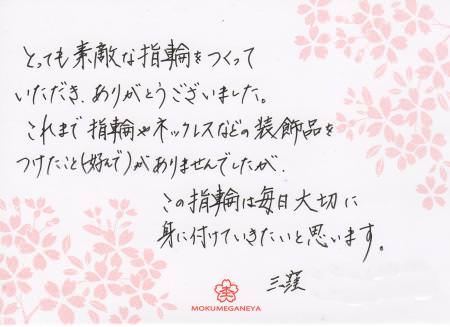 とっても素敵な指輪をつくって
いただき、ありがとうございました。
これまで指輪やネックレスなどの装飾品を
つけたこと(好んで)がありませんでしたが、
この指輪は毎日大切に
身に付けていきたいと思います。
三窪
MOKUMEGANEYA